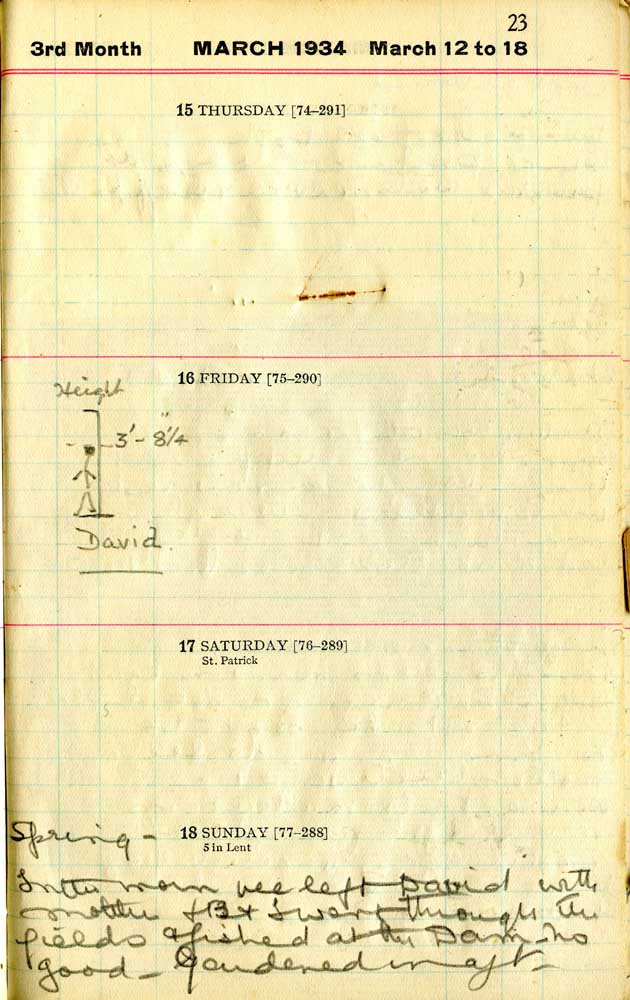 23
3rd Month MARCH 1934 March 12 to 18
15 THURSDAY [74–291]
16 FRIDAY [75–290]
Height
3'- 8¼"
David.
17 SATURDAY [76–289]
St. Patrick
Spring -
18 SUNDAY [77–288]
5 in Lent
In the morn we left David with
mother & B & I went through the
fields & fished at the Dam - no
good - Gardened in aft -